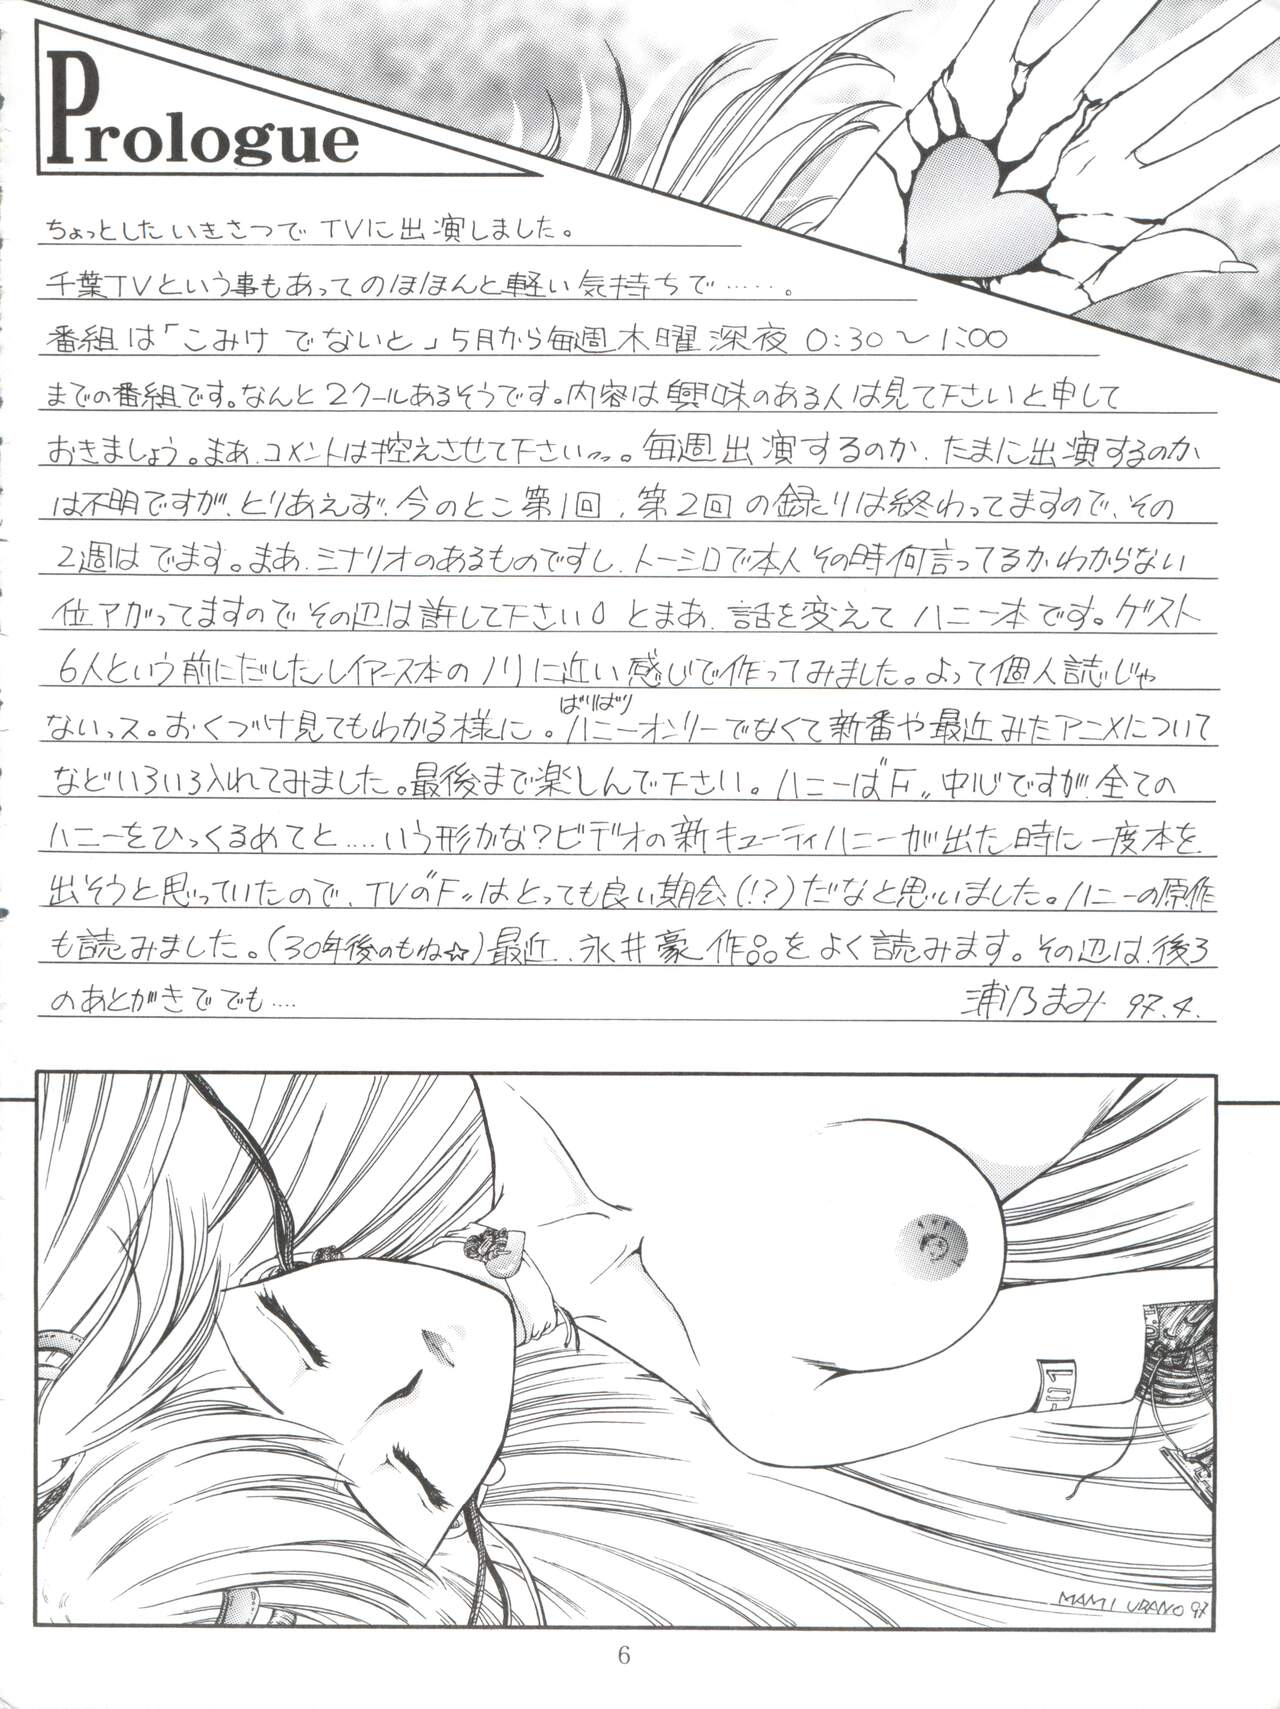 Prologue
ちょっとしたいきさつでTVに出演しました。
千葉TVという事もあってのほほんと軽い気持ちで‥‥‥。
番組は「こみけでないと」5月から毎週木曜深夜0:30〜1:00
までの番組です。なんと2クールあるそうです。内容は興味のある人は見て下さいと申して
おきましょう。まあ、コメントは控えさせて下さいっっ。毎週出演するのか、たまに出演するのか
は不明ですが、とりあえず、今のとこ第1回、第2回の録りは終わってますので、その
2週はでます。まあ、シナリオのあるものですし、トーシロで本人その時何言ってるかわからない
位アガってますのでその辺は許して下さい とまあ、話を変えてハニー本です。ゲスト
6人という前にだしたレイアース本のノリに近い感じで作ってみました。よって個人誌じゃ
ないっス。おくづけ見てもわかる様に。ばりばりハニーオンリーでなくて新番や最近みたアニメについて
などいろいろ入れてみました。最後まで楽しんで下さい。ハニーは"F"中心ですが、全ての
ハニーをひっくるめてと‥‥いう形かな?ビデオの新キューティハニーが出た時に一度本を
出そうと思っていたので、TVの"F"はとっても良い期会(!?)だなと思いました。ハニーの原作
も読みました。(30年後のもね☆)最近、永井豪作品をよく読みます。その辺は、後ろ
のあとがきででも‥‥
浦乃まみ 97.4.
101
MAMI URANO 97
6